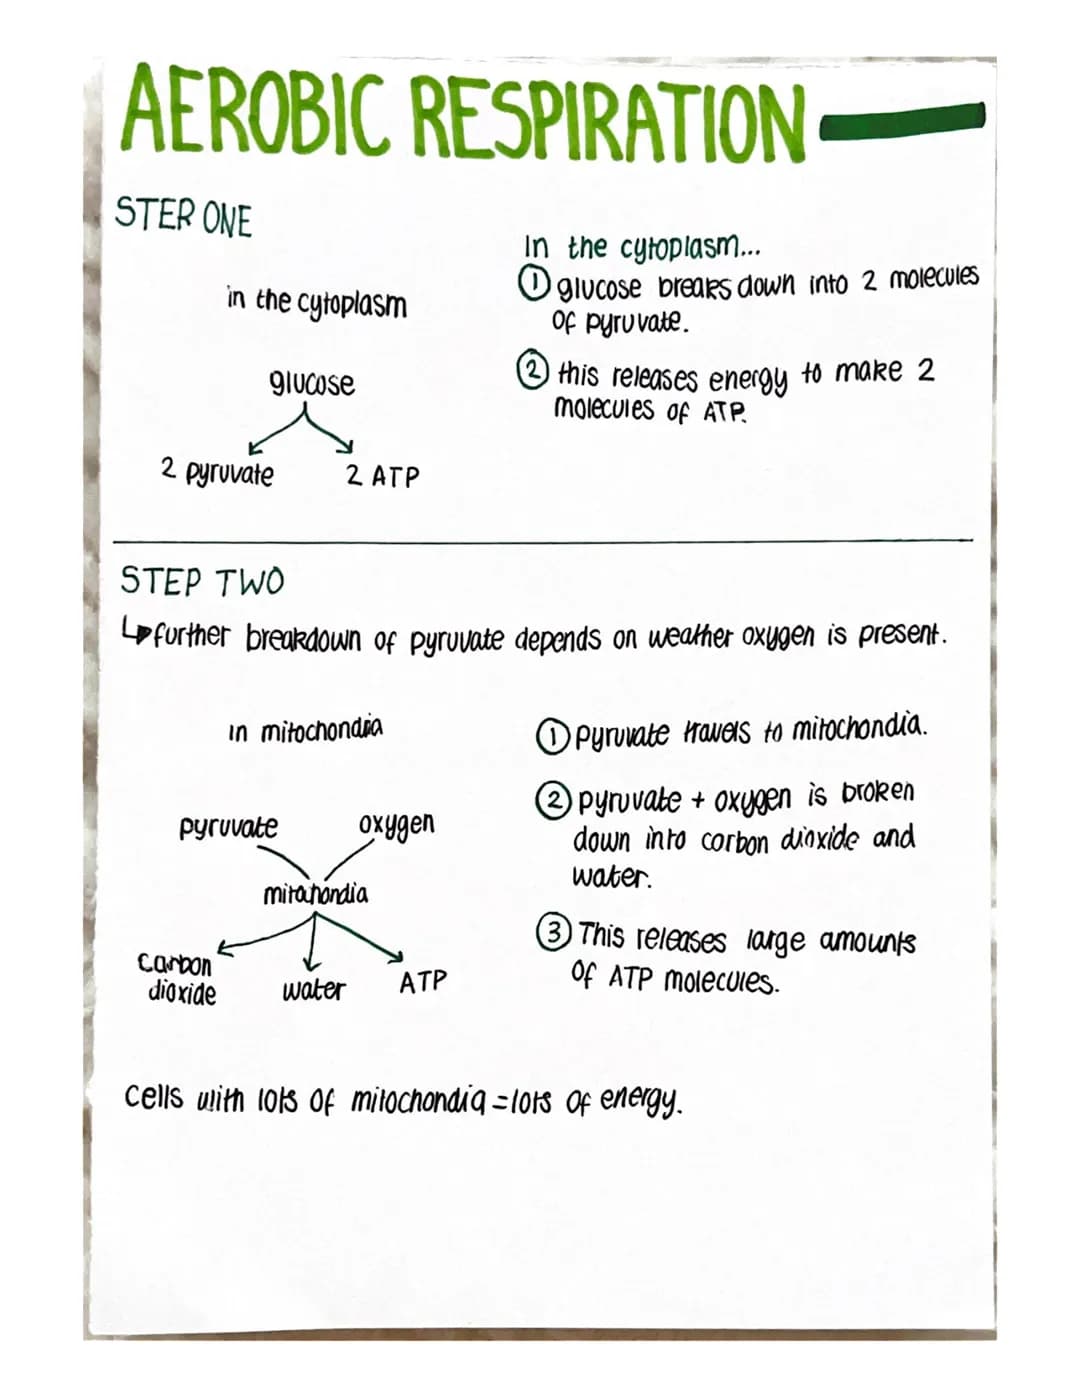 AEROBIC RESPIRATION
STEP ONE
in the cytoplasm
glucose
2 pyruvate 2 ATP
In the cytoplasm...
① glucose breaks down into 2 molecules
of pyruvate.
② this releases energy to make 2
molecules of ATP.
STEP TWO
↳ further breakdown of pyruvate depends on weather oxygen is present.
in mitochondia
pyruvate oxygen
mitochondia
carbon
dioxide water ATP
① Pyruvate travels to mitochondia.
② pyruvate + oxygen is broken
down into carbon dioxide and
water.
③ This releases large amounts
of ATP molecules.
cells with lots of mitochondia = lots of energy.